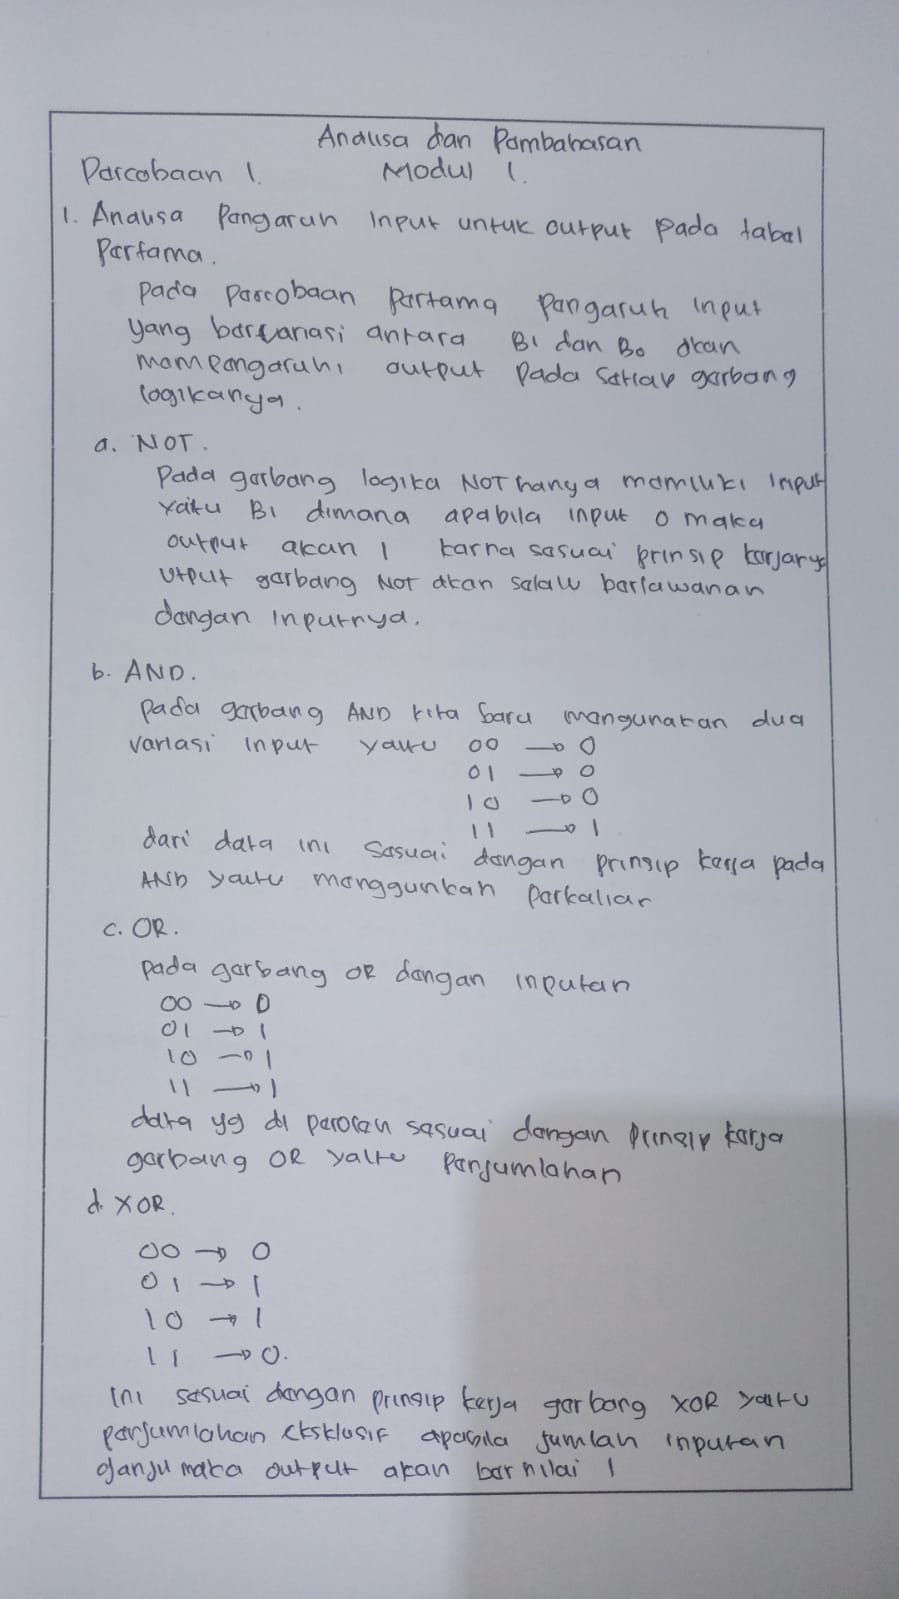 Analisa dan Pembahasan
Percobaan 1. Modul 1.
1. Analisa Pengaruh Input untuk output pada tabel
Pertama.
Pada Percobaan Pertama Pengaruh Input
yang bervariasi antara B1 dan B0 akan
mempengaruhi output pada setiap gerbang
logikanya.
a. NOT.
Pada gerbang logika NOT hanya memiliki Input
yaitu B1 dimana apabila input 0 maka
output akan 1 karna sesuai prinsip kerjanya
utput gerbang Not akan selalu berlawanan
dengan Inputnya.
b. AND.
pada gerbang AND kita baru mengunakan dua
variasi Input yaitu 00 → 0
01 → 0
10 → 0
11 → 1
dari data ini sesuai dengan prinsip kerja pada
AND yaitu menggunkan Perkalian
c. OR.
pada gerbang OR dengan inputan
00 → 0
01 → 1
10 → 1
11 → 1
data yg di peroleh sesuai dengan prinsip kerja
gerbang OR yaitu Penjumlahan
d. XOR.
00 → 0
01 → 1
10 → 1
11 → 0.
Ini sesuai dengan prinsip kerja gerbang XOR yaitu
penjumlahan eksklusif apabila jumlah inputan
ganjil maka output akan bernilai 1